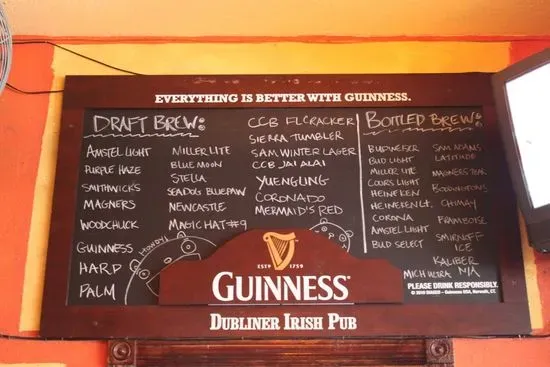 EVERYTHING IS BETTER WITH GUINNESS.
DRAFT BREW:
AMSTEL LIGHT
PURPLE HAZE
SMITHWICK'S
MAGNERS
WOODCHUCK
GUINNESS
HARP
PALM
MILLER LITE
BLUE MOON
STELLA
SEADOG BLUEPAW
NEWCASTLE
MAGIC HAT #9
HOWDY!
CCB FL CRACKER
SIERRA TUMBLER
SAM WINTER LAGER
CCB JAI ALAI
YUENGLING
CORONADO
MERMAID'S RED
BOTTLED BREW:
BUDWEISER
BUD LIGHT
MILLER LITE
COORS LIGHT
HEINEKEN
HEINEKEN LT.
CORONA
AMSTEL LIGHT
BUD SELECT
MICH ULTRA
SAM ADAMS
LATITUDE
MAGNERS PEAR
BODDINGTONS
CHIMAY
FRAMBOISE
SMIRNOFF
ICE
KALIBER
N/A
ESTD 1759
GUINNESS
PLEASE DRINK RESPONSIBLY.
DUBLINER IRISH PUB